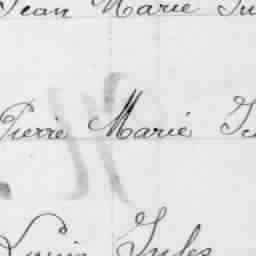 Jean Marie
Pierre Marie
Louis Jules